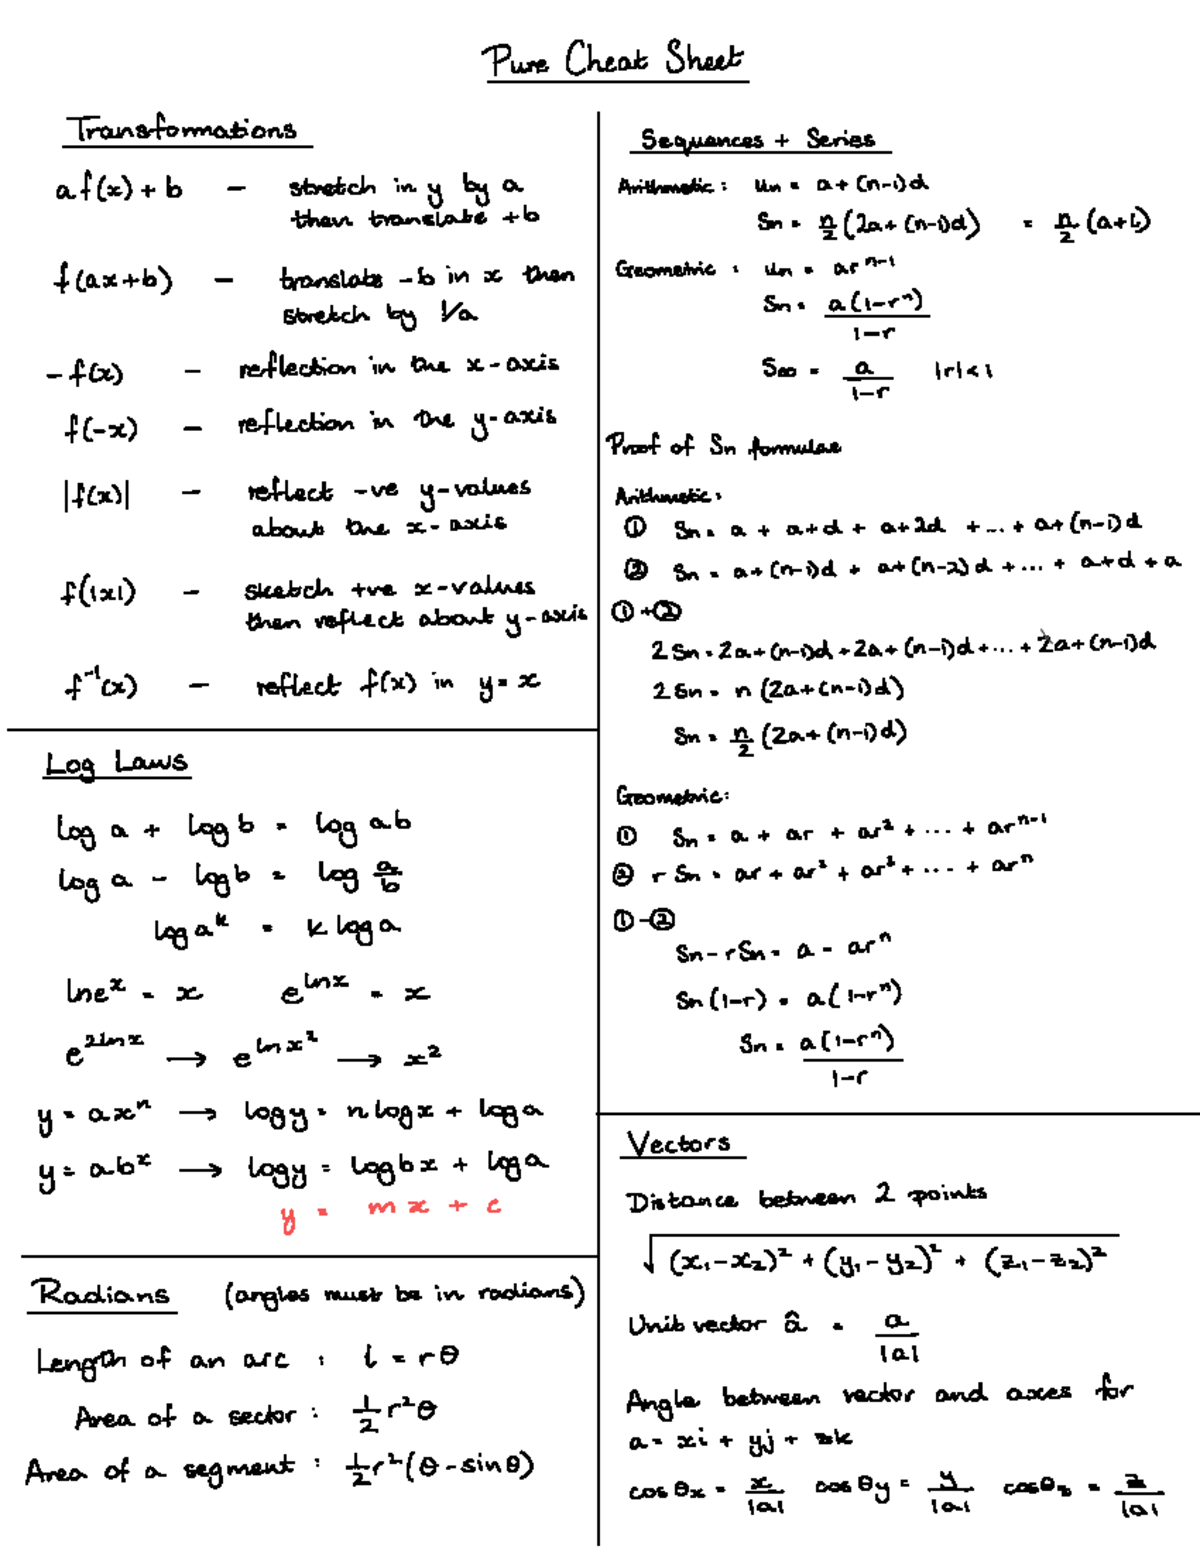 Pure Cheat Sheet
Transformations
af(x) + b - stretch in y by a
then translate +b
f(ax+b) - translate -b in x then
stretch by 1/a
-f(x) - reflection in the x-axis
f(-x) - reflection in the y-axis
|f(x)| - reflect -ve y-values
about the x-axis
f(|x|) - sketch +ve x-values
then reflect about y-axis
f⁻¹(x) - reflect f(x) in y = x
Log Laws
log a + log b = log ab
log a - log b = log a/b
log aᵏ = k log a
lneˣ = x e^(lnx) = x
e^(2lnx) → e^(lnx²) → x²
y = axⁿ → logy = nlogx + loga
y = abˣ → logy = logbx + loga
y = mx + c
Radians (angles must be in radians)
Length of an arc : l = rθ
Area of a sector : 1/2 r²θ
Area of a segment : 1/2 r²(θ - sinθ)
Sequences + Series
Arithmetic : Un = a + (n-1)d
Sn = n/2 (2a + (n-1)d) = n/2 (a+L)
Geometric : Un = arⁿ⁻¹
Sn = a(1-rⁿ)/1-r
S∞ = a/1-r |r|<1
Proof of Sn formulae
Arithmetic:
① Sn = a + a+d + a+2d + ... + a+(n-1)d
② Sn = a+(n-1)d + a+(n-2)d + ... + a+d + a
①+②
2Sn = 2a+(n-1)d + 2a+(n-1)d + ... + 2a+(n-1)d
2Sn = n(2a+(n-1)d)
Sn = n/2 (2a+(n-1)d)
Geometric:
① Sn = a + ar + ar² + ... + arⁿ⁻¹
② rSn = ar + ar² + ar³ + ... + arⁿ
①-②
Sn - rSn = a - arⁿ
Sn(1-r) = a(1-rⁿ)
Sn = a(1-rⁿ)/1-r
Vectors
Distance between 2 points
√(x₁-x₂)² + (y₁-y₂)² + (z₁-z₂)²
Unit vector â = a/|a|
Angle between vector and axes for
a = xi + yj + zk
cosθx = x/|a| cosθy = y/|a| cosθz = z/|a|